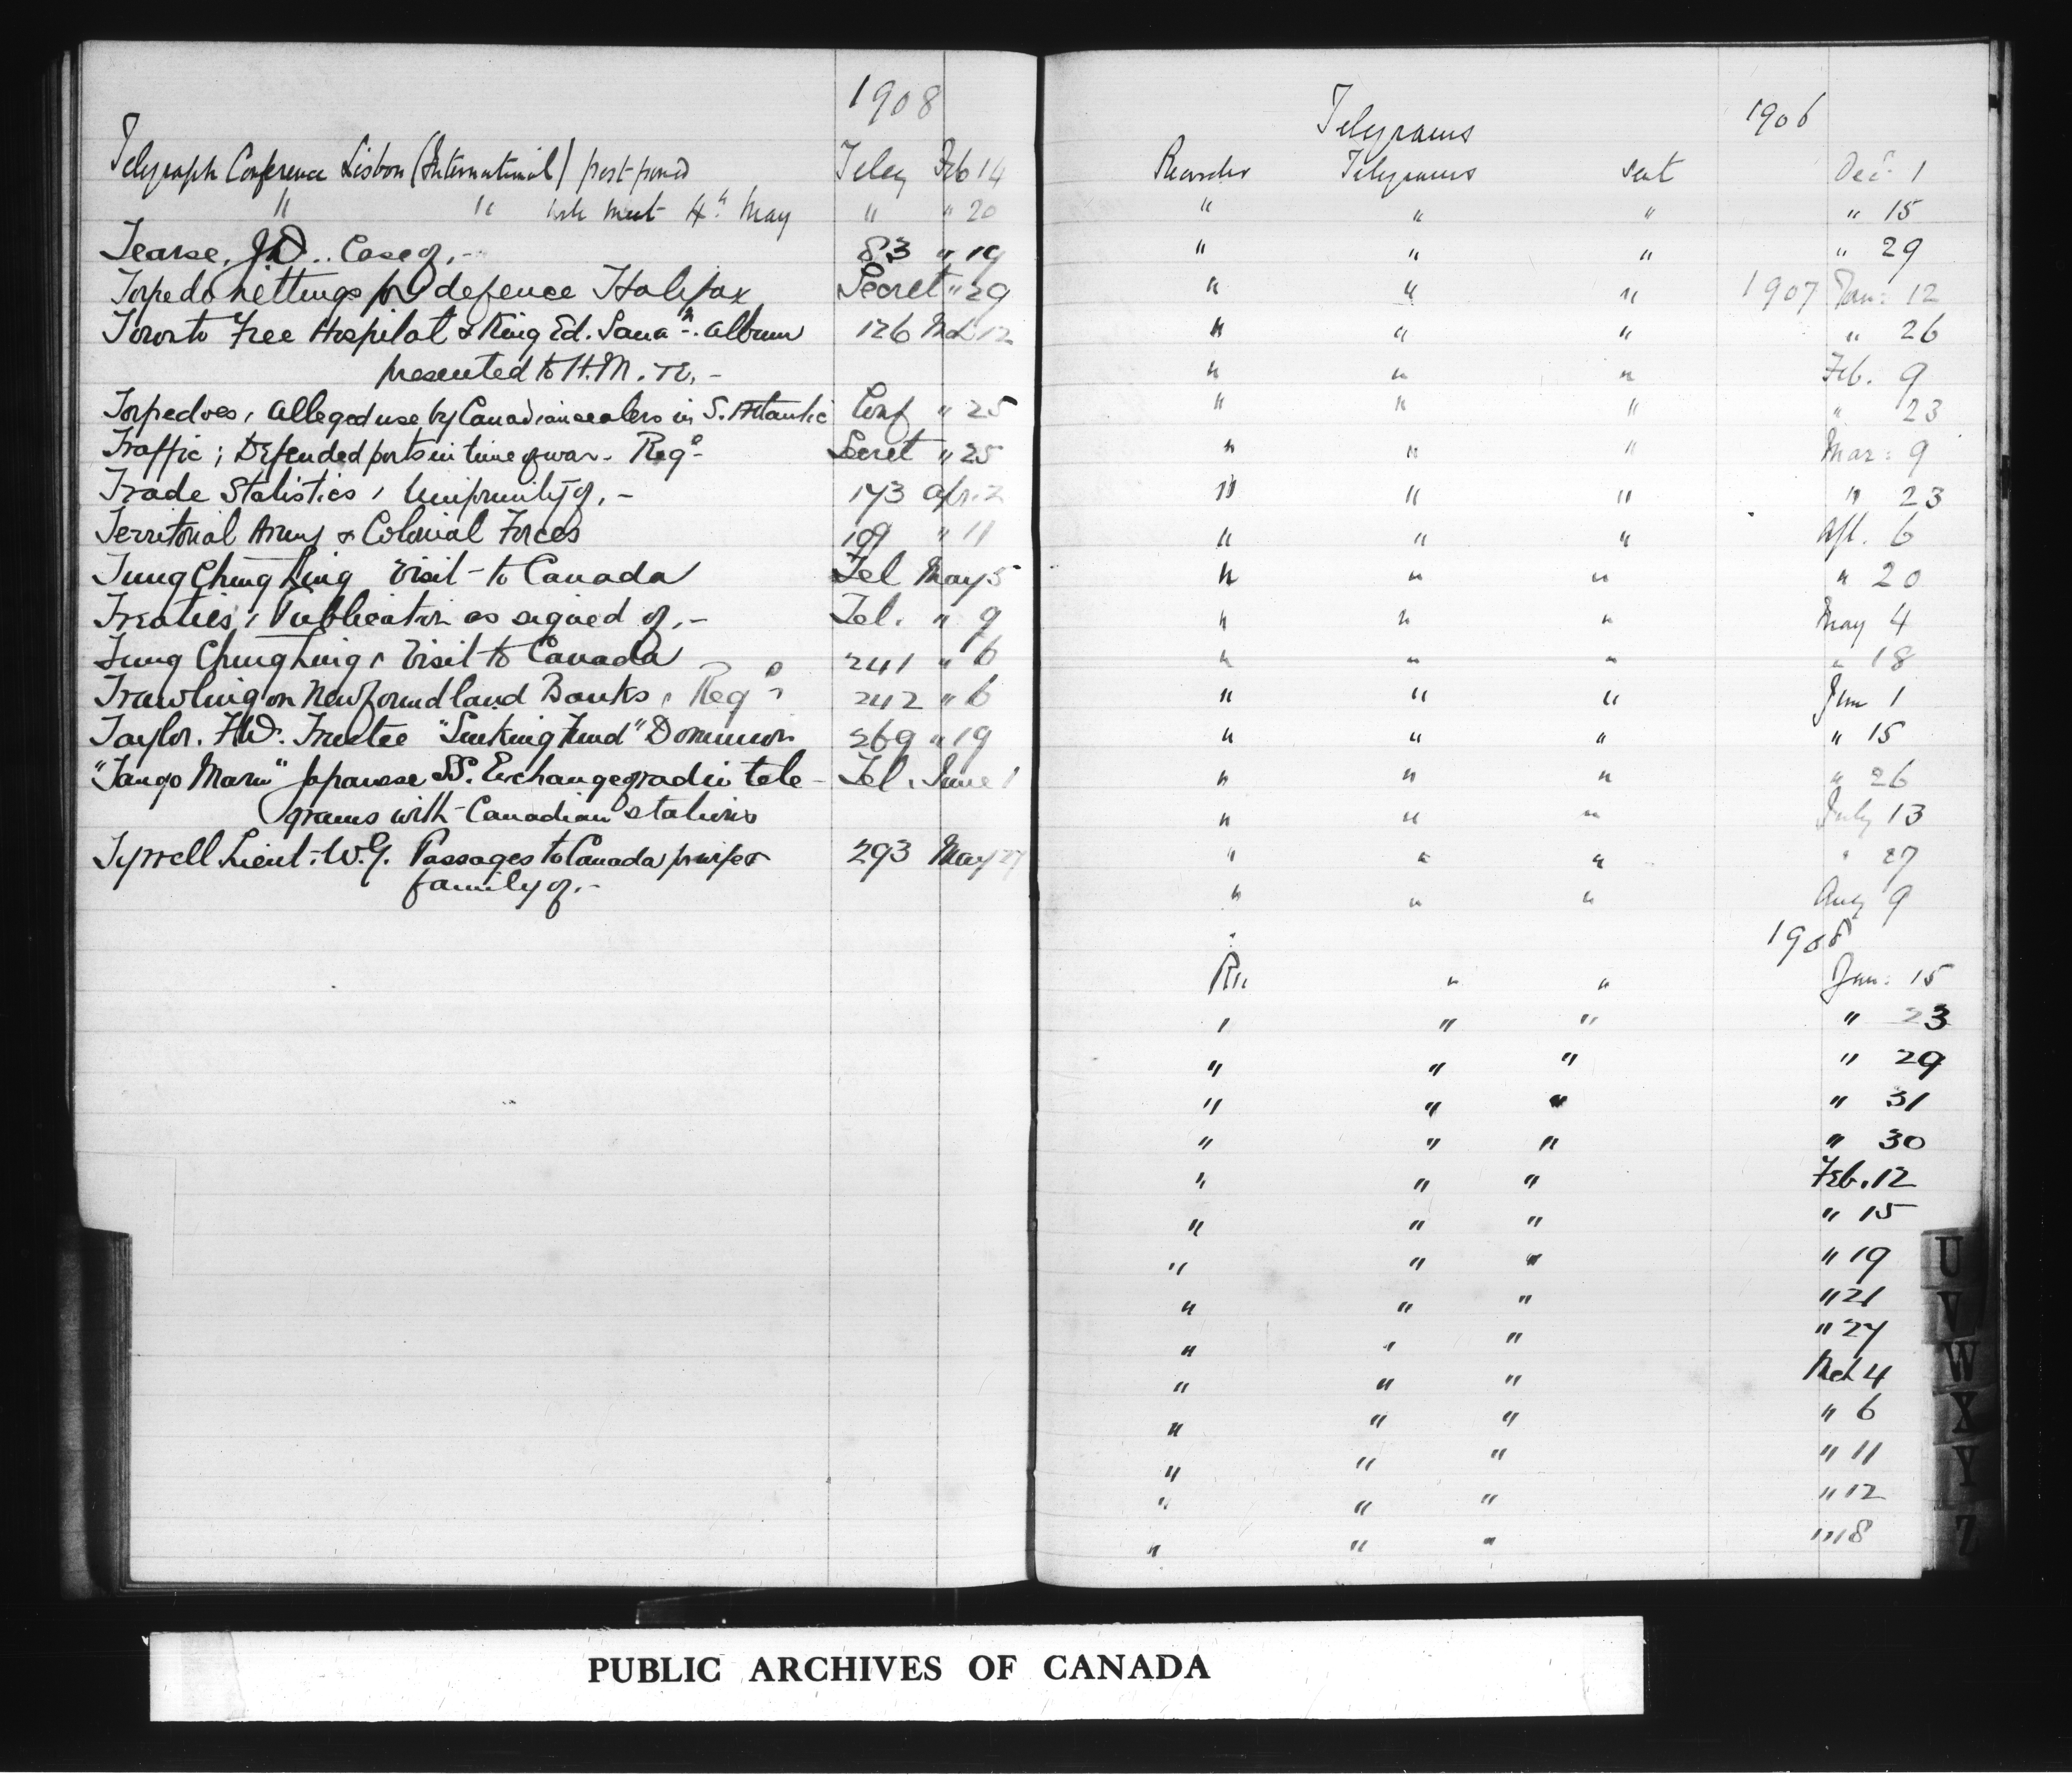 1908
Telegraph Conference Lisbon (International) post-poned Teleg Feb 14
" " will meet 4th May " " 20
Tearse, J.D.. Case of,- 83 " 19
Torpedo nettings for defence Halifax Secret " 29
Toronto Free Hospital & King Ed. Sana n. album 126 Mch 12
presented to H.M. The,-
Torpedoes, Alleged use by Canadian sealers in S. Atlantic Conf " 25
Traffic; Defended ports in time of war - Reg o Secret " 25
Trade Statistics, Uniformity of,- 173 Apr. 2
Territorial Army & Colonial Forces 109 " 11
Tung Ching Ling Visit to Canada Tel May 5
Treaties, Publication as signed of,- Tel. " 9
Tung Ching Ling, Visit to Canada 241 " 6
Trawling on Newfoundland Banks, Reg o 242 " 6
Taylor. F.W. Trustee "Sinking Fund" Dominion 269 " 19
"Tango Maru" Japanese SS. Exchange of radio tele- Tel. June 1
grams with Canadian stations
Tyrrell Lieut. W.G. Passages to Canada for wife & 293 May 27
family of.-
Telegrams 1906
Telegrams sent Dec 1
" " " " 15
" " " " 29
" " " 1907 Jan: 12
" " " " 26
" " " Feb. 9
" " " " 23
" " " Mar: 9
" " " " 23
" " " Apl. 6
" " " " 20
" " " May 4
" " " " 18
" " " Jun 1
" " " " 15
" " " " 26
" " " July 13
" " " " 27
" " " Aug 9
1908
" " Jan: 15
" " " " 23
" " " " 29
" " " " 31
" " " " 30
" " " Feb. 12
" " " " 15
" " " " 19
" " " " 21
" " " " 27
" " " Mch 4
" " " " 6
" " " " 11
" " " " 12
" " " " 18
U
V
W
X
Y
Z
PUBLIC ARCHIVES OF CANADA